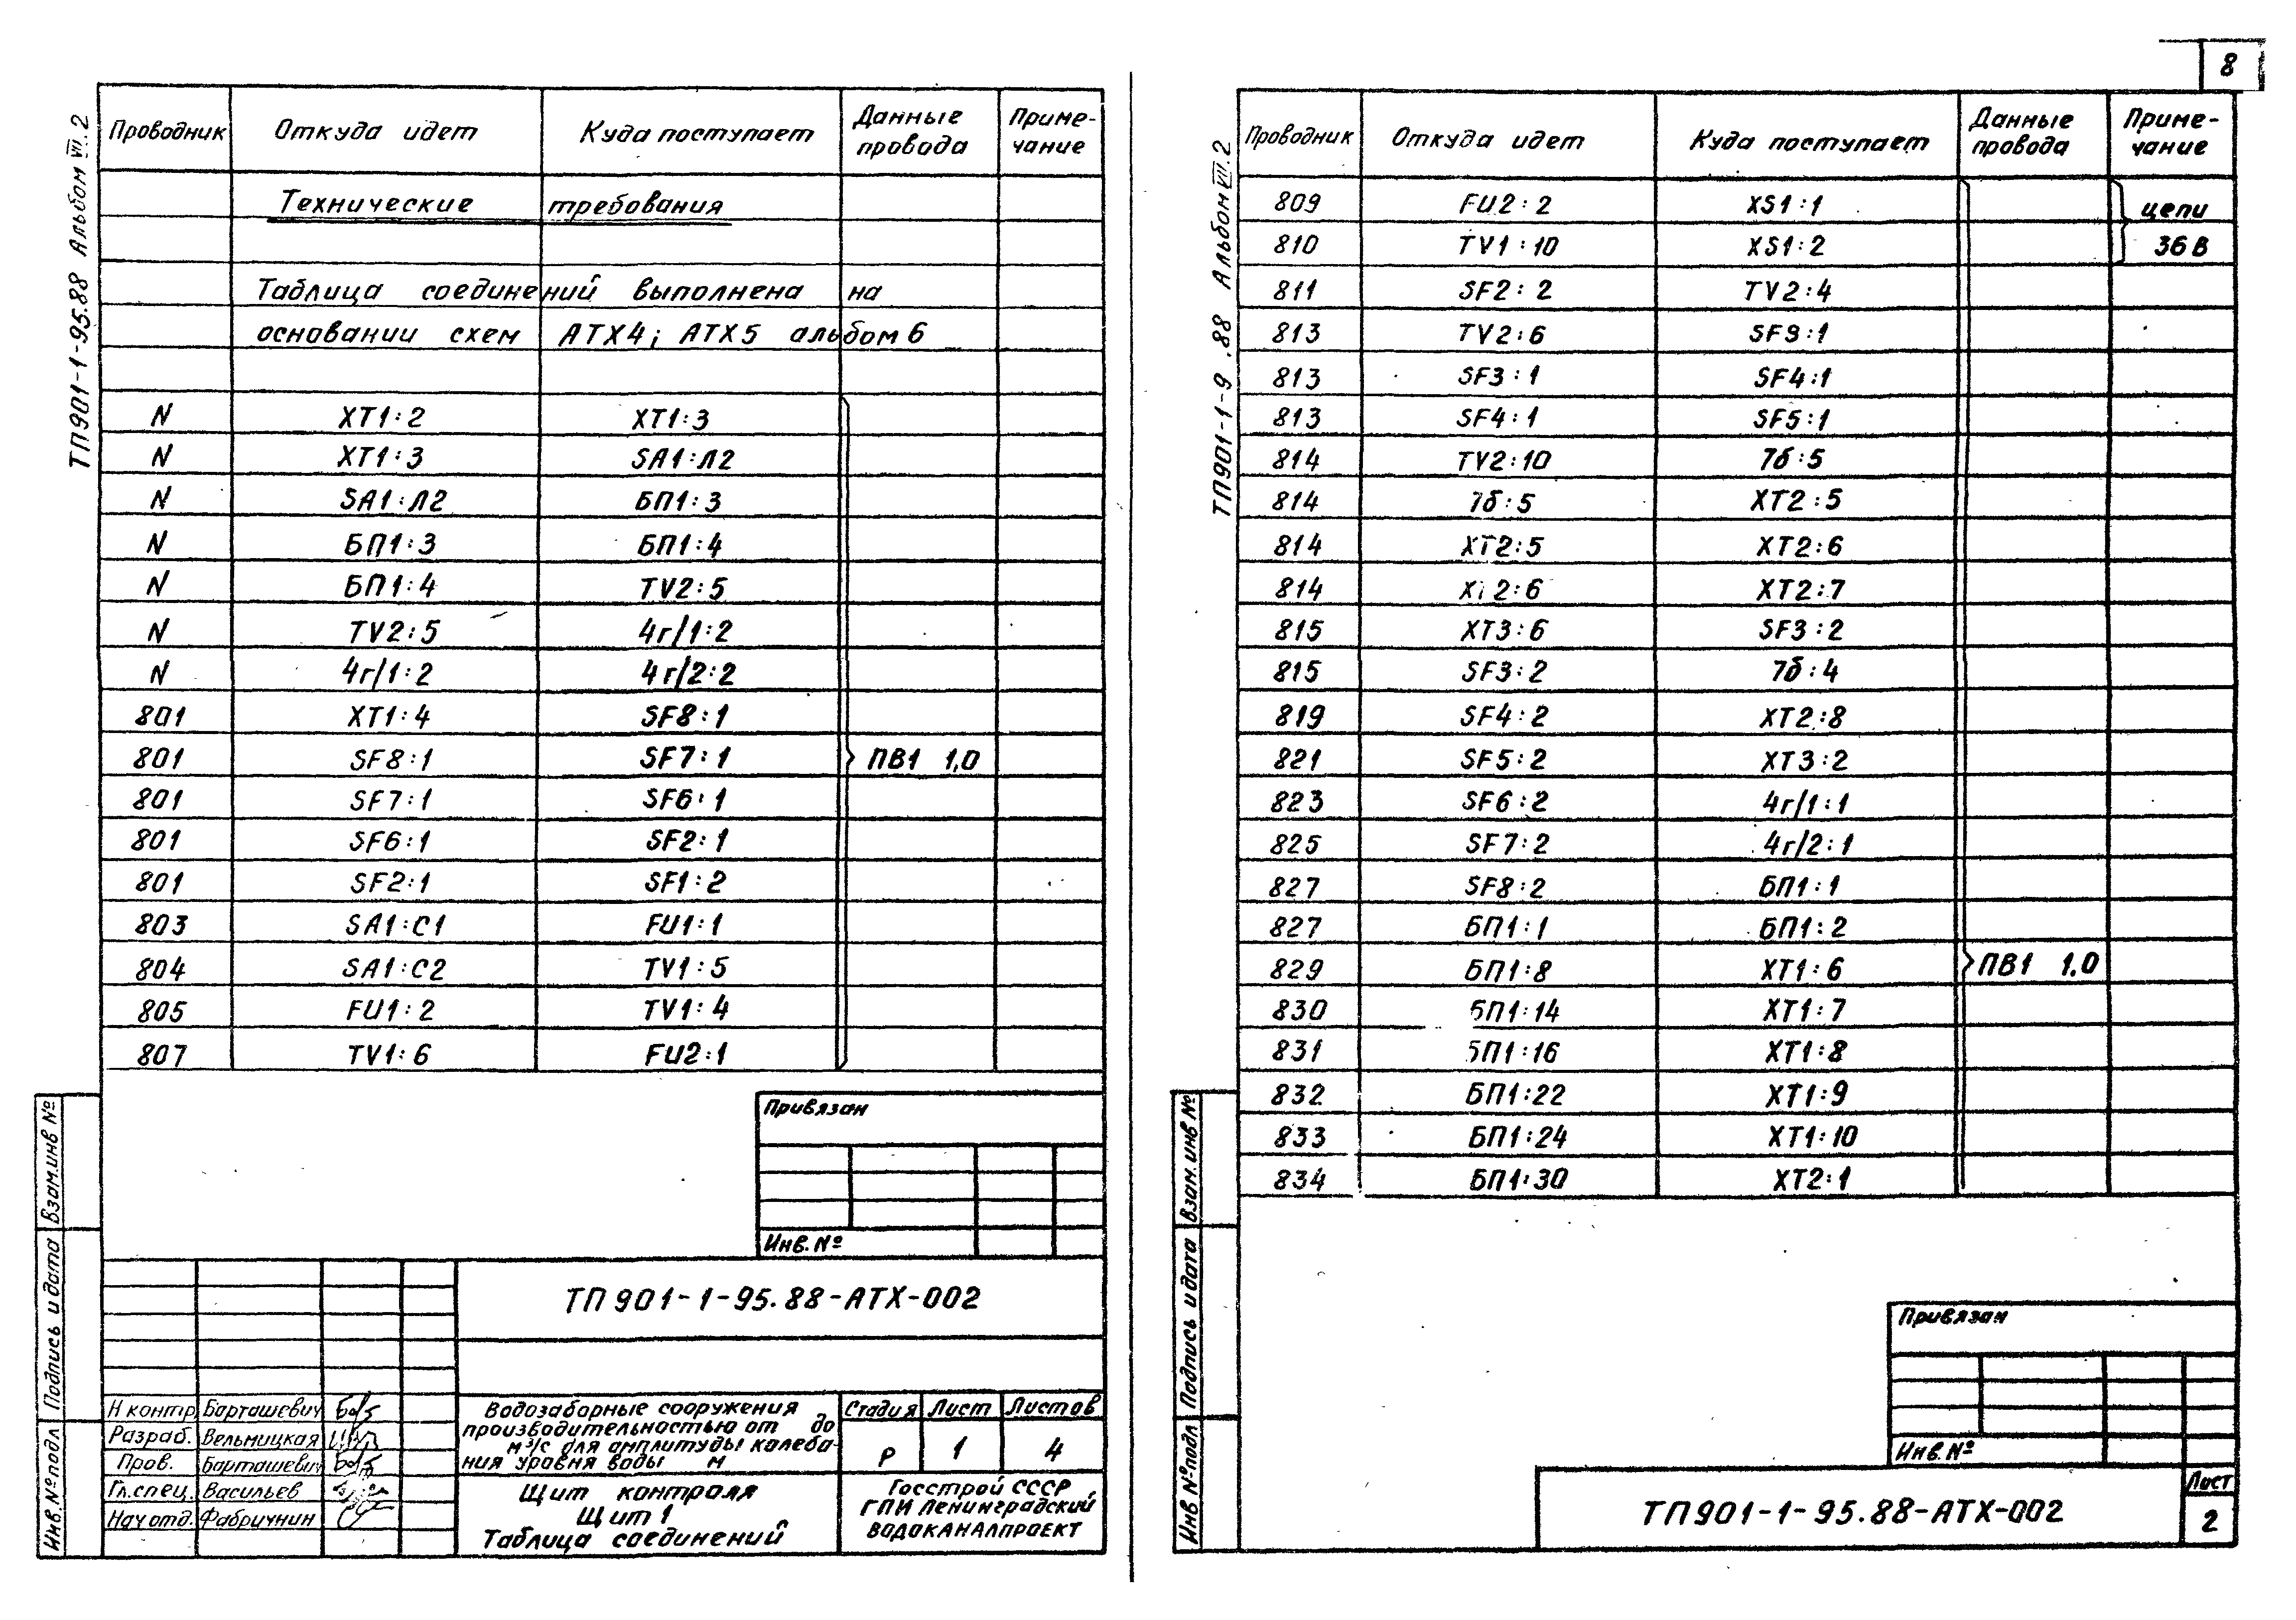 8
ТП901-1-95.88 Альбом VII.2
Проводник Откуда идет Куда поступает Данные провода Приме-чание
Технические требования
Таблица соединений выполнена на
основании схем АТХ4; АТХ5 альбом 6
N ХТ1:2 ХТ1:3
N ХТ1:3 SA1:Л2
N SA1:Л2 БП1:3
N БП1:3 БП1:4
N БП1:4 TV2:5
N TV2:5 4г/1:2
N 4г/1:2 4г/2:2
801 ХТ1:4 SF8:1
801 SF8:1 SF7:1 ПВ1 1,0
801 SF7:1 SF6:1
801 SF6:1 SF2:1
801 SF2:1 SF1:2
803 SA1:С1 FU1:1
804 SA1:С2 TV1:5
805 FU1:2 TV1:4
807 TV1:6 FU2:1
Привязан
Инв.№
ТП 901-1-95.88-АТХ-002
Н контр. Барташевич
Разраб. Вельмицкая
Пров. Барташевич
Гл.спец. Васильев
Нач отд. Фабричнин
Водозаборные сооружения
производительностью от до
м³/с для амплитуды колеба-
ния уровня воды м
Стадия Лист Листов
Р 1 4
Щит контроля
Щит 1
Таблица соединений
Госстрой СССР
ГПИ Ленинградский
ВОДОКАНАЛПРОЕКТ
Инв.№подл Подпись и дата Взам.инв №
ТП901-1-9 .88 Альбом VII.2
Проводник Откуда идет Куда поступает Данные провода Приме-чание
809 FU2:2 XS1:1 цепи
810 TV1:10 XS1:2 36 В
811 SF2:2 TV2:4
813 TV2:6 SF3:1
813 SF3:1 SF4:1
813 SF4:1 SF5:1
814 TV2:10 7б:5
814 7б:5 ХТ2:5
814 ХТ2:5 ХТ2:6
814 ХТ2:6 ХТ2:7
815 ХТ3:6 SF3:2
815 SF3:2 7б:4
819 SF4:2 ХТ2:8
821 SF5:2 ХТ3:2
823 SF6:2 4г/1:1
825 SF7:2 4г/2:1
827 SF8:2 БП1:1
827 БП1:1 БП1:2
829 БП1:8 ХТ1:6 ПВ1 1,0
830 БП1:14 ХТ1:7
831 БП1:16 ХТ1:8
832 БП1:22 ХТ1:9
833 БП1:24 ХТ1:10
834 БП1:30 ХТ2:1
Привязан
Инв.№
ТП901-1-95.88-АТХ-002
Лист
2
Инв №подл Подпись и дата Взам.инв №